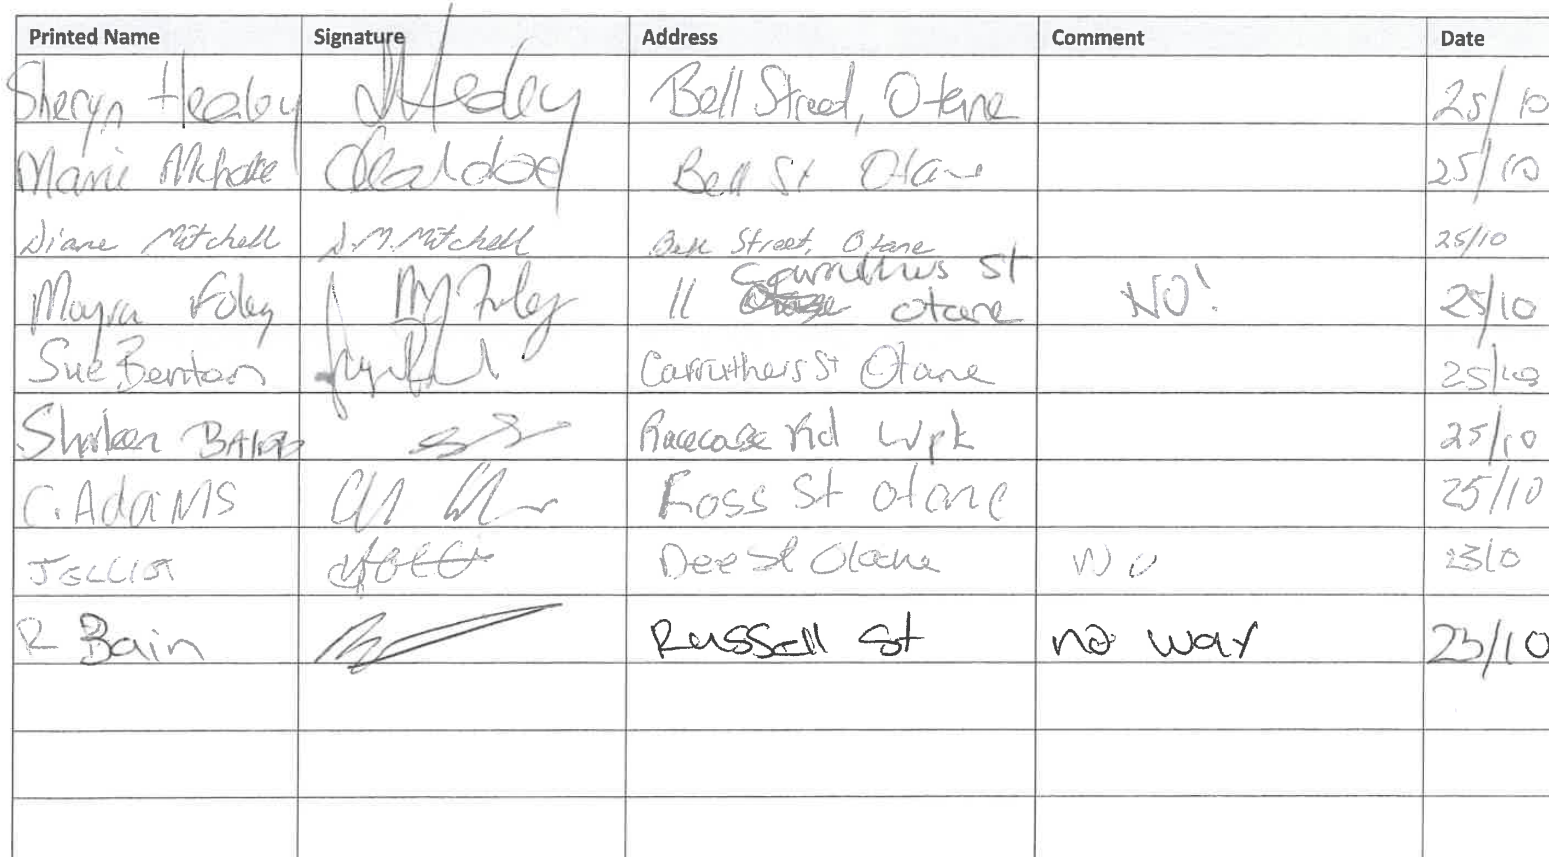 Printed Name Signature Address Comment Date
Sheryn Healey SHealey Bell Street, Otane 25/10
Marie Bell St Otane 25/10
Diane Mitchell D.M. Mitchell Bell Street, Otane 25/10
Mayra Foley M Foley 11 Carruthers St Otane NO! 25/10
Sue Benton Carruthers St Otane 25/10
Shirleen Racecourse Rd Wpk 25/10
C. Adams Ross St Otane 25/10
Dee St Otane NO
R Bain Russell St no way 23/10